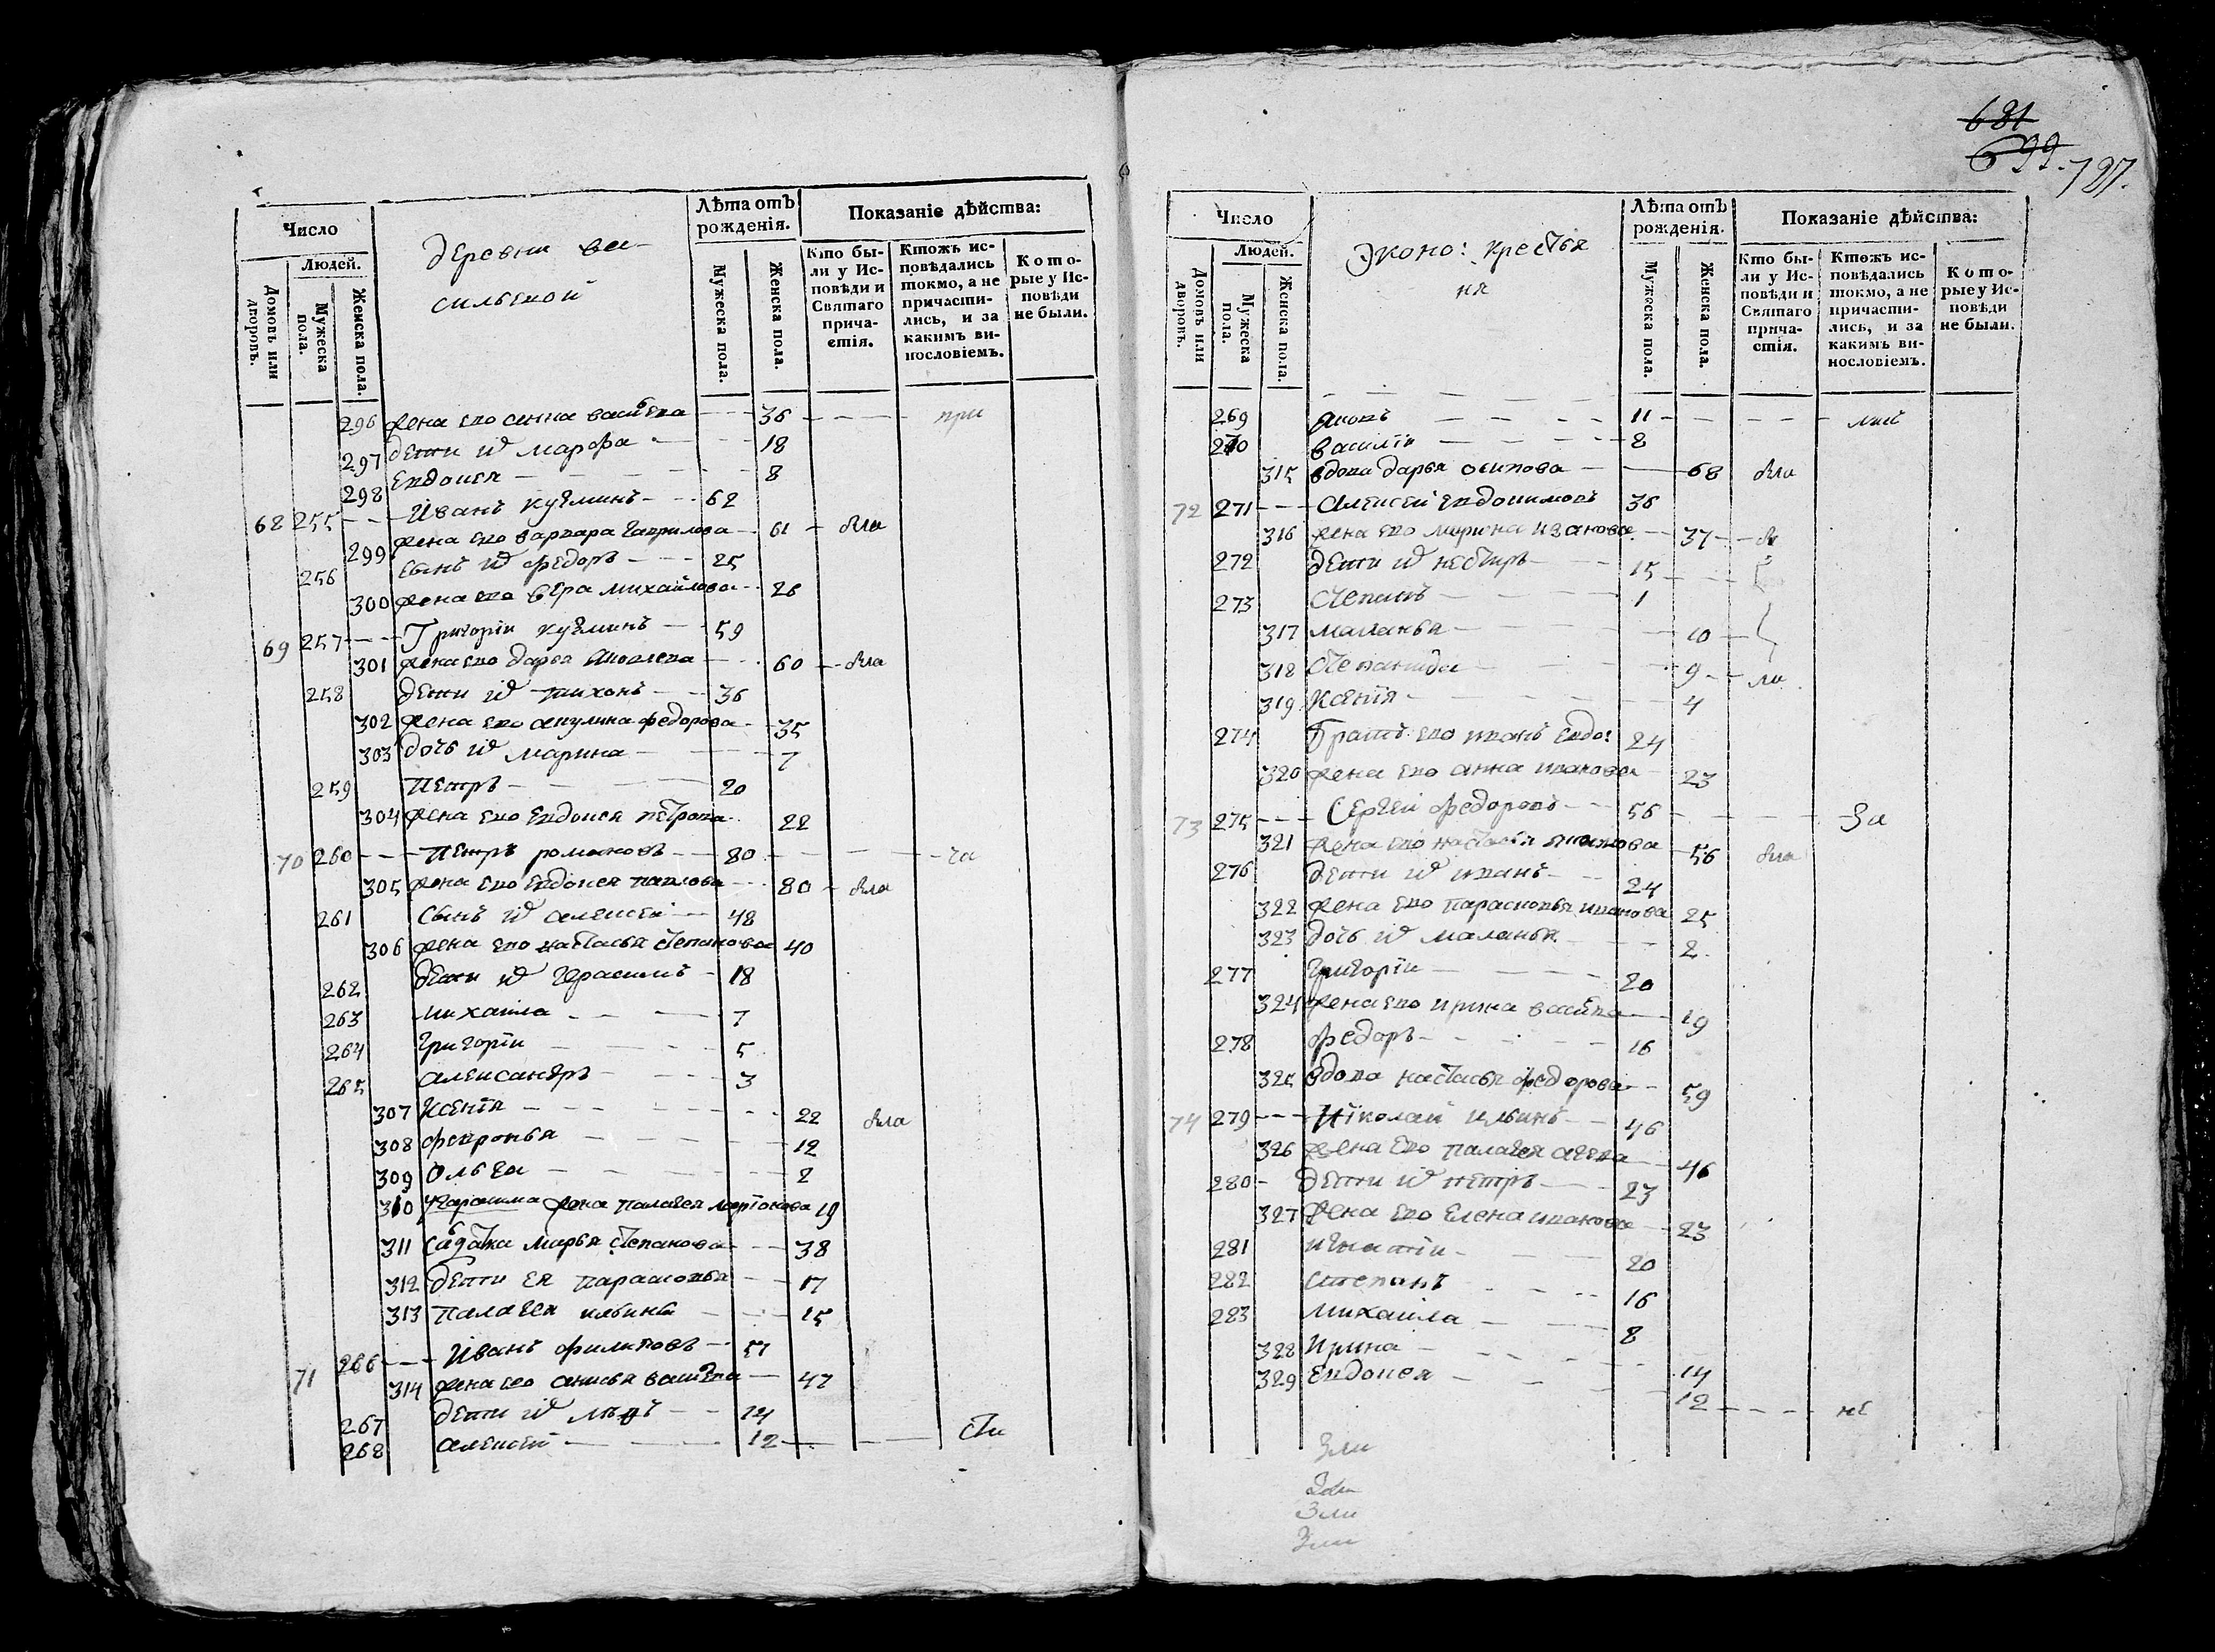 Число
Людей.
Домовъ или дворовъ.
Мужеска пола.
Женска пола.
деревни ва-
сильской
Лѣта отъ рожденія.
Мужеска пола.
Женска пола.
Показаніе дѣйства:
Кто бы-
ли у Ис-
повѣди и
Святаго
прича-
стія.
Ктожъ ис-
повѣдались
токмо, а не
причасти-
лись, и за
какимъ ви-
нословіемъ.
Кото-
рые у Ис-
повѣди
не были.
296 жена его анна васильева 36 при
297 дети их марфа 18
298 Евдокея 8
68 255 Иванъ кузминъ 62
299 жена его варвара гаврилова 61 была
256 сынъ их федоръ 25
300 жена его вера михайлова 26
69 257 Григории кузминъ 59
301 жена его дарья яковлева 60 была
258 дети их тихонъ 36
302 жена его акулина федорова 35
303 дочь их марина 7
259 Петръ 20
304 жена его Евдокея петрова 22
70 260 Петръ романовъ 80 ча
305 жена его Евдокея павлова 80 была
261 сынъ их алексеи 48
306 жена его настасья степанова 40
262 дети их герасимъ 18
263 михаила 7
264 григории 5
265 александръ 3
307 Ксения 22 была
308 февронья 12
309 Ольга 2
310 герасима жена палагея мартонова 19
311 салдатка марья степанова 38
312 дети ея парасковья 17
313 палагея ильины 15
71 266 Иванъ филиповъ 51
314 жена его анисья васильева 47
267 дети их 14
268 алексеи 12 сти
681
699.
727.
Число
Людей.
Домовъ или дворовъ.
Мужеска пола.
Женска пола.
Эконо: крестья
ня
Лѣта отъ рожденія.
Мужеска пола.
Женска пола.
Показаніе дѣйства:
Кто бы-
ли у Ис-
повѣди и
Святаго
прича-
стія.
Ктожъ ис-
повѣдались
токмо, а не
причасти-
лись, и за
какимъ ви-
нословіемъ.
Кото-
рые у Ис-
повѣди
не были.
269 яковъ 11
270 василїи 8
315 вдова дарья осипова 68 была
72 271 Алексеи Евдокимовъ 36
316 жена его марина иванова 37
272 дети их нестиръ 15
273 степанъ 1
317 маланья 10
318 степанида 9 ли
319 Ксения 4
274 братъ его иванъ Евдо: 24
320 жена его анна иванова 23
73 275 Сергеи федоровъ 56 за
321 жена его настасья 56 была
276 дети их иванъ 24
322 жена его парасковья иванова 25
323 дочь их маланья 2
277 григорїи 20
324 жена его ирина васильева 19
278 федоръ 16
325 вдова настасья федорова 59
74 279 Нїколаи ильинъ 46
326 жена его палагея 46
280 дети их петръ 23
327 жена его Елена иванова 23
281 игнатїи 20
282 степанъ 16
283 михаила 8
328 Ирина 14
329 Евдокея 12 не